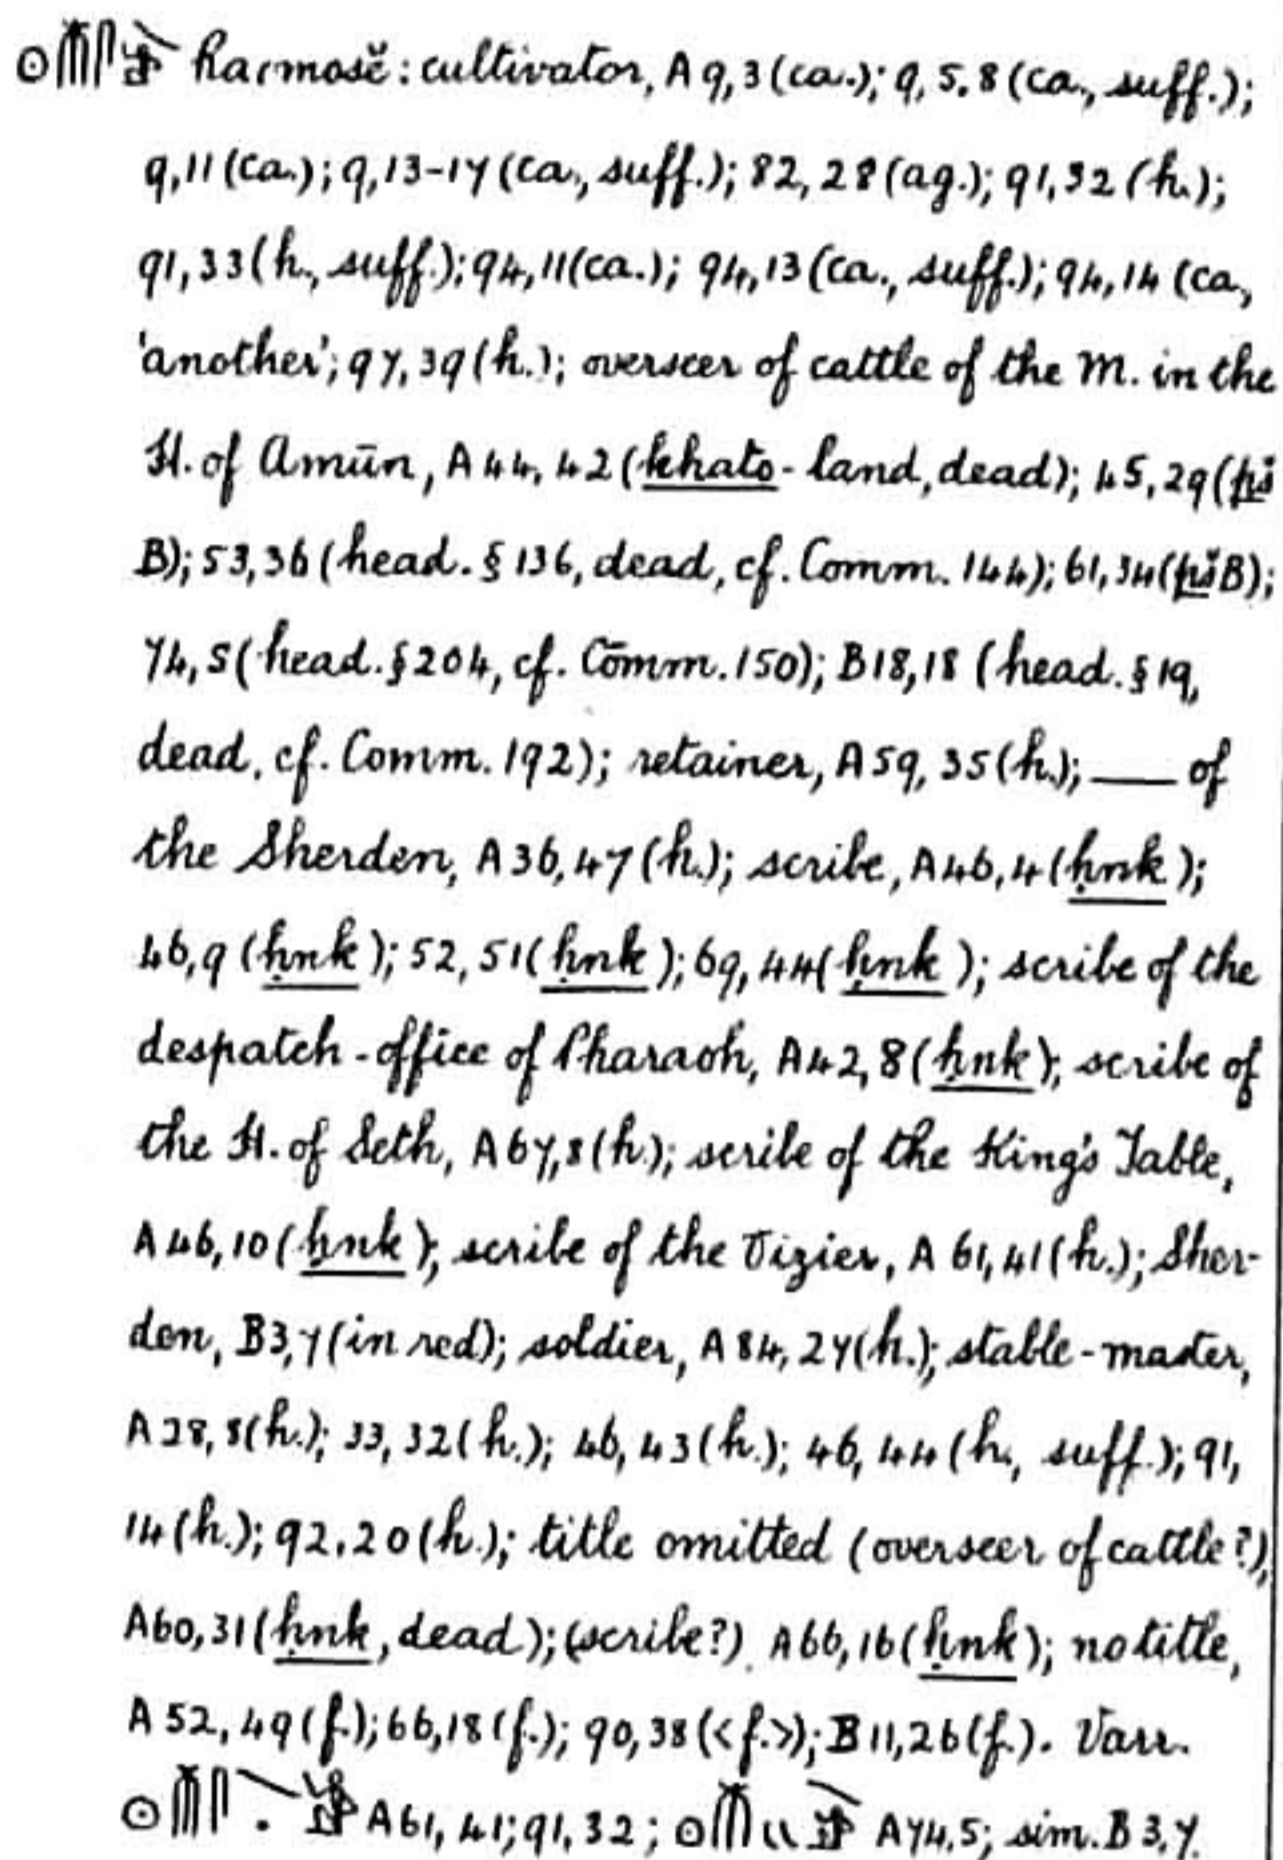 Raꜥmosĕ: cultivator, A 9, 3 (ca.); 9, 5. 8 (ca., suff.);
9, 11 (ca.); 9, 13-17 (ca., suff.); 82, 28 (ag.); 91, 32 (h.);
91, 33 (h., suff.); 94, 11 (ca.); 94, 13 (ca., suff.); 94, 14 (ca.,
'another'; 97, 39 (h.); overseer of cattle of the M. in the
H. of Amūn, A 44, 42 (khato-land, dead); 45, 29 (pš
B); 53, 36 (head. § 136, dead, cf. Comm. 144); 61, 34 (pš B);
74, 5 (head. § 204, cf. Comm. 150); B 18, 18 (head. § 19,
dead, cf. Comm. 192); retainer, A 59, 35 (h.); —— of
the Sherden, A 36, 47 (h.); scribe, A 46, 4 (ḥnk);
46, 9 (ḥnk); 52, 51 (ḥnk); 69, 44 (ḥnk); scribe of the
despatch-office of Pharaoh, A 42, 8 (ḥnk); scribe of
the H. of Seth, A 67, 8 (h.); scribe of the King's Table,
A 46, 10 (ḥnk); scribe of the Vizier, A 61, 41 (h.); Sher-
den, B 3, 7 (in red); soldier, A 84, 27 (h.); stable-master,
A 28, 8 (h.); 33, 32 (h.); 46, 43 (h.); 46, 44 (h., suff.); 91,
14 (h.); 92, 20 (h.); title omitted (overseer of cattle?),
A 60, 31 (ḥnk, dead); (scribe?) A 66, 16 (ḥnk); no title,
A 52, 49 (f.); 66, 18 (f.); 90, 38 (<f.>); B 11, 26 (f.). Varr.
A 61, 41; 91, 32; A 74, 5; sim. B 3, 7.